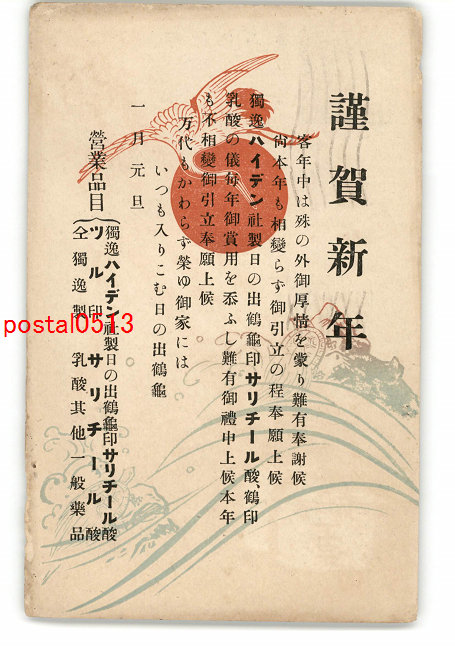 謹賀新年
客年中は殊の外御厚情を蒙り難有奉謝候
尙本年も相變らず御引立の程奉願上候
獨逸ハイデン社製日の出鶴龜印サリチール酸、鶴印
乳酸の儀每年御賞用を忝ふし難有御禮申上候本年
も不相變御引立奉願上候
万代もかわらず榮ゆ御家には
いつも入りこむ日の出鶴龜
一月元旦
營業品目
獨逸ハイデン社製日の出鶴龜印サリチール酸
ツル印サリチール酸
仝獨逸製乳酸其他一般藥品
postal0513